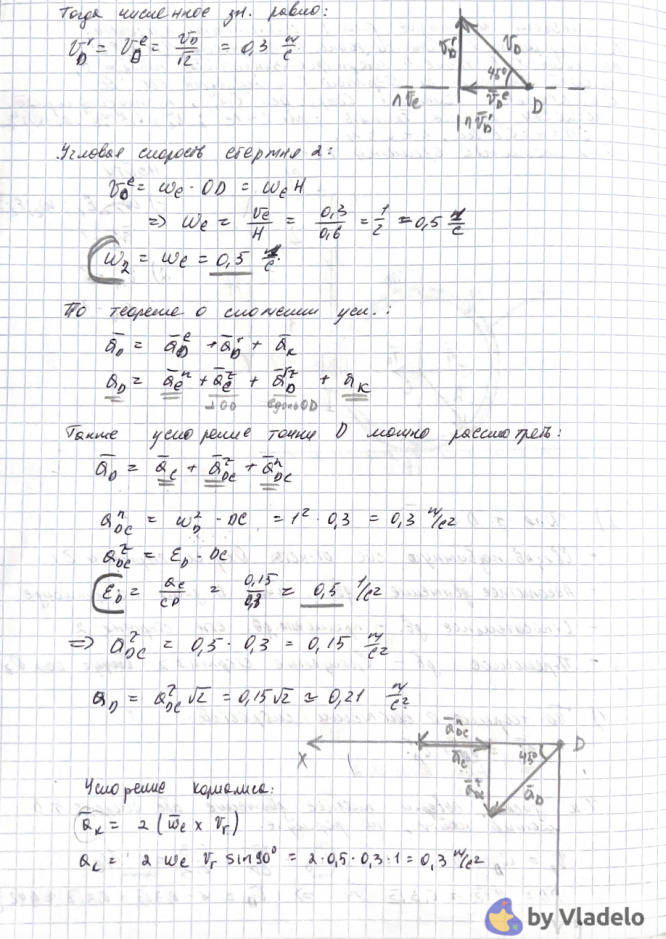 Тогда численное зн. равно:
V_D^r = V_D^e = V_D/√2 = 0,3 м/с
V_D^r V_D 45° V_D^e D
∩ V̄_e
∩ V̄_D^r
Угловая скорость стержня 2:
V_D^e = ω_e · OD = ω_e H
=> ω_e = V_e/H = 0,3/0,6 = 1/2 = 0,5 1/с
ω_2 = ω_e = 0,5 1/с
По теореме о сложении уск.:
ā_D = ā_D^e + ā_D^r + ā_K
ā_D = ā_e^n + ā_e^τ + ā_D^r + ā_K
⊥OD вдоль OD
Также ускорение точки D можно рассмотреть:
ā_D = ā_C + ā_DC^τ + ā_DC^n
a_DC^n = ω_D^2 · DC = 1^2 · 0,3 = 0,3 м/с2
a_DC^τ = ε_D · DC
ε_D = a_C/CD = 0,15/0,3 = 0,5 1/с2
=> a_DC^τ = 0,5 · 0,3 = 0,15 м/с2
a_D = a_DC^τ √2 = 0,15√2 ≈ 0,21 м/с2
X ā_DC^n ā_C 45° D
ā_DC^τ ā_D
Ускорение кориолиса:
ā_K = 2 (ω̄_e x V̄_r)
a_K = 2 ω_e V_r sin90° = 2·0,5·0,3·1 = 0,3 м/с2
by Vladelo